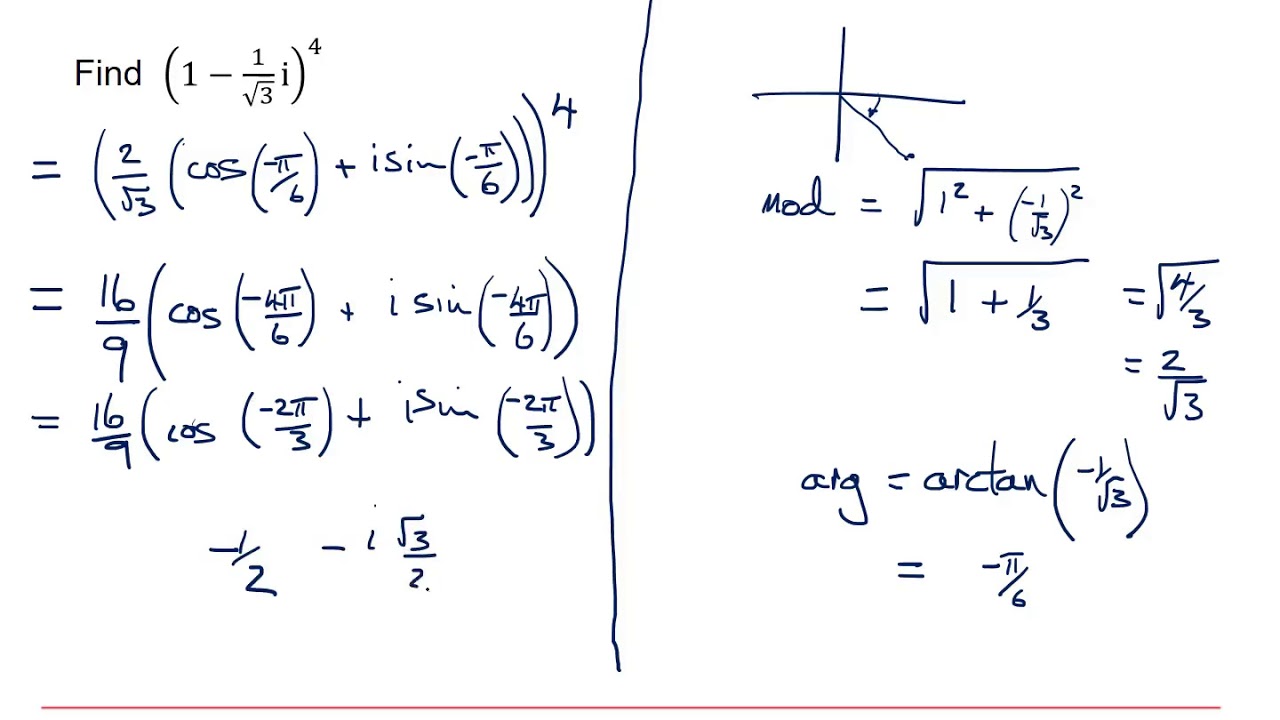 Find (1 − 1/√3 i)^4
= (2/√3 (cos(-π/6) + i sin(-π/6)))^4
= 16/9 (cos(-4π/6) + i sin(-4π/6))
= 16/9 (cos(-2π/3) + i sin(-2π/3))
-1/2 - i √3/2
mod = √(1² + (-1/√3)²)
= √(1 + 1/3) = √(4/3)
= 2/√3
arg = arctan(-1/√3)
= -π/6